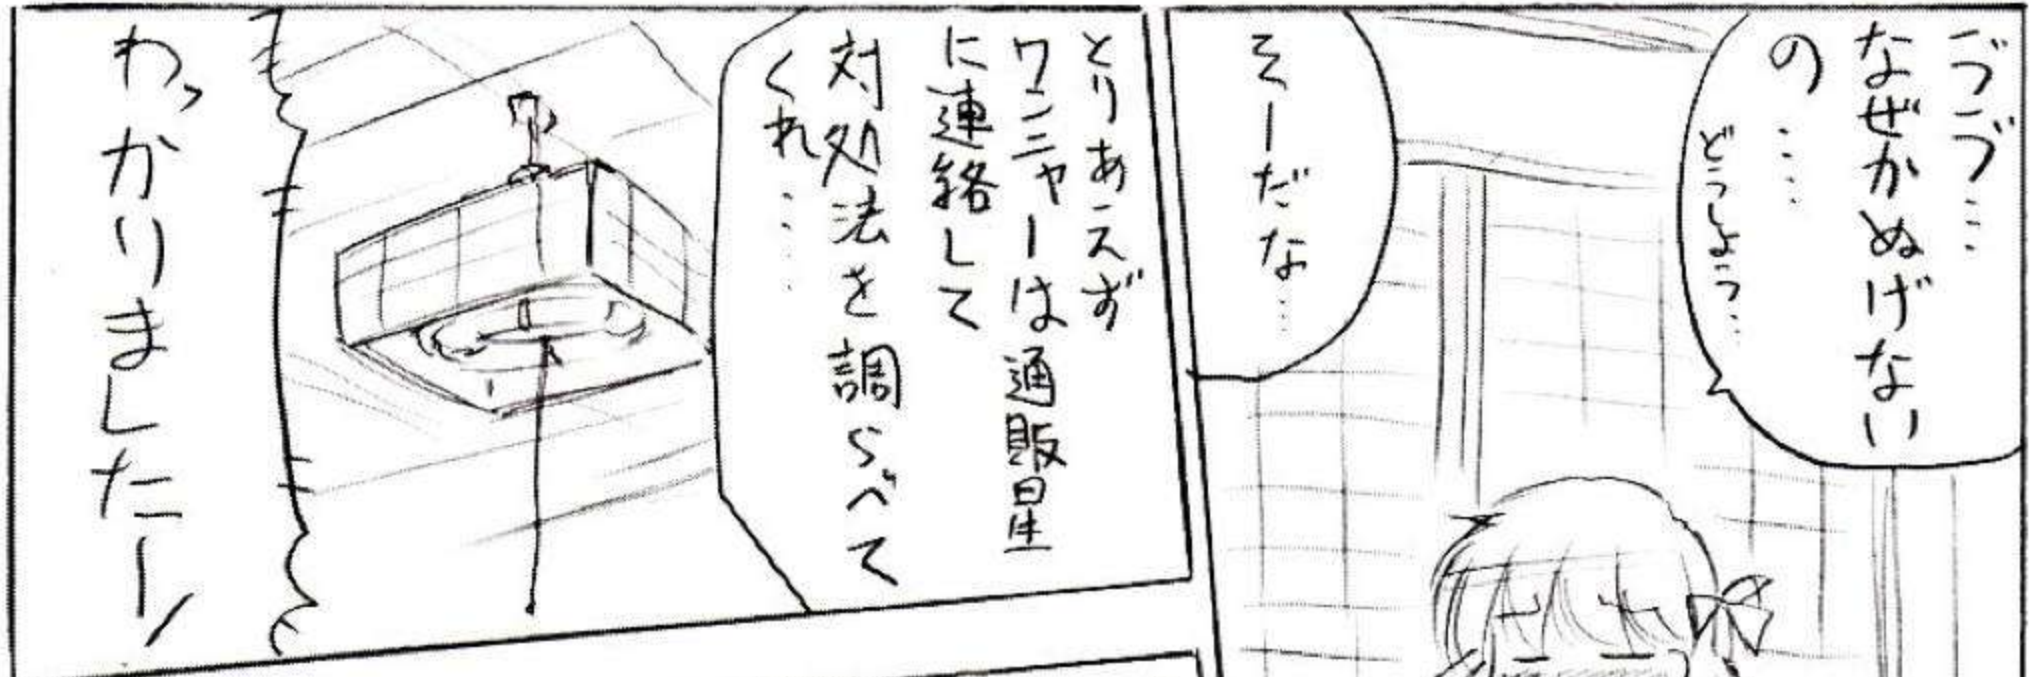 ううう…
なぜかぬげない
の……
どうしよう…
そーだな…
とりあえず
ワンニャーは通販星
に連絡して
対処法を調らべて
くれ……
わっかりましたー!